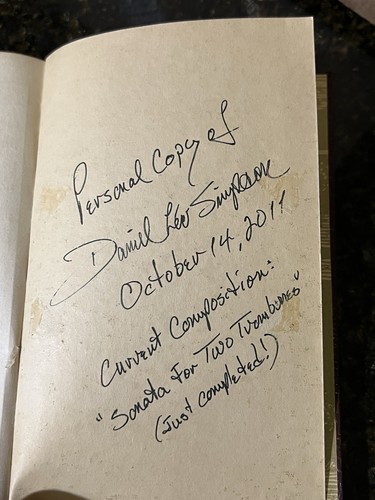 Personal Copy of
Daniel Léo Simpson
October 14, 2011
Current Composition:
"Sonata For Two Trombones"
(Just completed!)